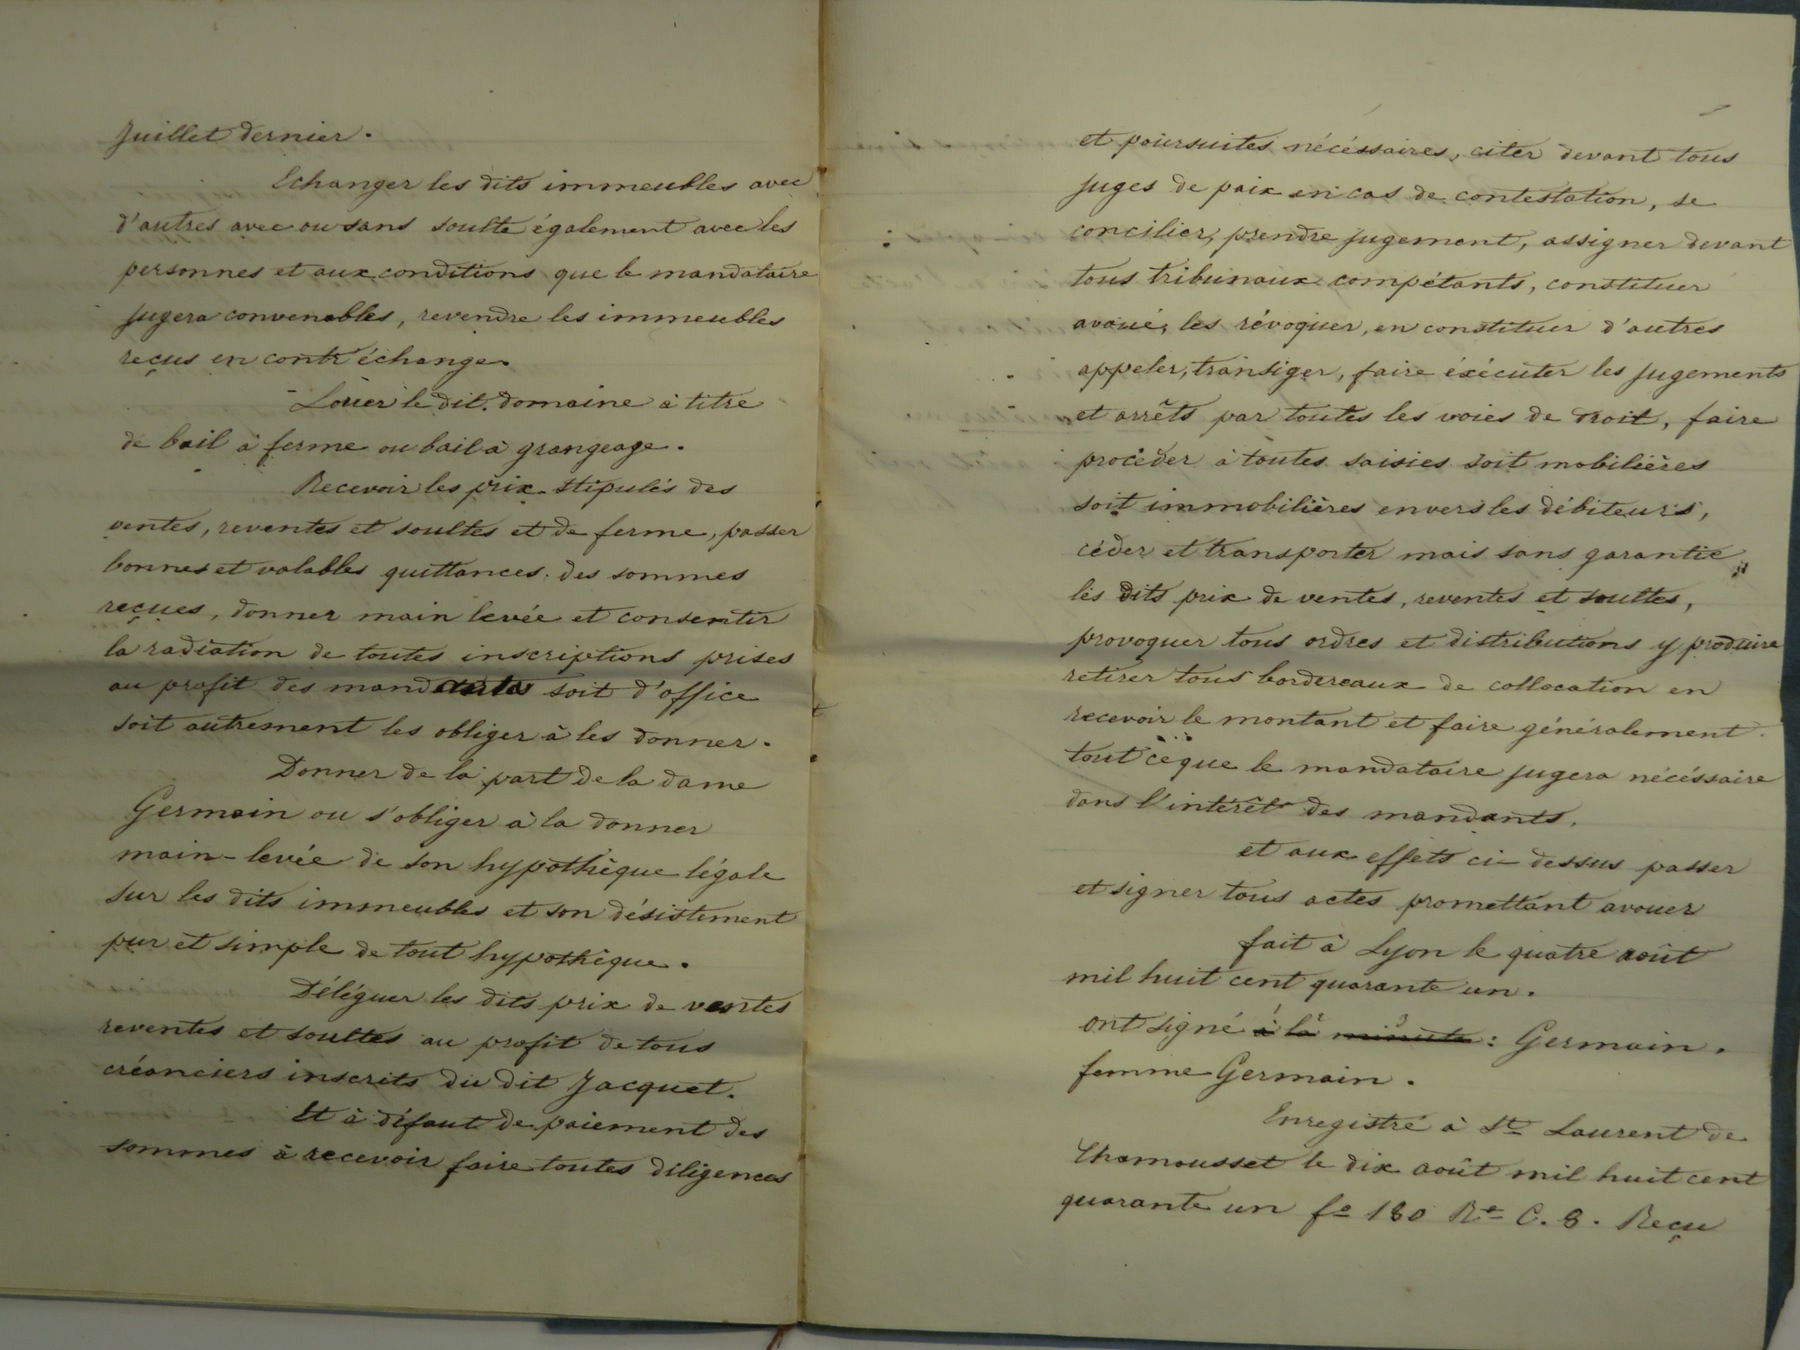 Juillet dernier.
Echanger les dits immeubles avec
d'autres avec ou sans soulte également avec les
personnes et aux conditions que le mandataire
jugera convenables, revendre les immeubles
reçus en contr'échange.
Louer le dit domaine à titre
de bail à ferme ou bail à grangeage.
Recevoir les prix stipulés des
ventes, reventes et soultes et de ferme, passer
bonnes et valables quittances des sommes
reçues, donner main levée et consentir
la radiation de toutes inscriptions prises
au profit des mandants soit d'office
soit autrement les obliger à les donner.
Donner de la part de la dame
Germain ou s'obliger à la donner
main-levée de son hypothèque légale
sur les dits immeubles et son désistement
pur et simple de tout hypothèque.
Déléguer les dits prix de ventes
reventes et soultes au profit de tous
créanciers inscrits du dit Jacquet.
Et à défaut de paiement des
sommes à recevoir faire toutes diligences
et poursuites nécéssaires, citer devant tous
juges de paix en cas de contestation, se
concilier, prendre jugement, assigner devant
tous tribunaux compétants, constituer
avoué, les révoquer, en constituer d'autres
appeler, transiger, faire éxécuter les jugements
et arrêts par toutes les voies de droit, faire
procèder à toutes saisies soit mobilières
soit immobilières envers les débiteurs,
céder et transporter mais sans garantie
les dits prix de ventes, reventes et soultes,
provoquer tous ordres et distributions y produire
retirer tous bordereaux de collocation en
recevoir le montant et faire généralement
tout ce que le mandataire jugera nécéssaire
dans l'intérêt des mandants.
et aux effets ci-dessus passer
et signer tous actes promettant avouer
fait à Lyon le quatre août
mil huit cent quarante un.
ont signé à la minute : Germain.
femme Germain.
Enregistré à St Laurent de
Chamousset le dix août mil huit cent
quarante un fo 180 Ro C. 8. Reçu